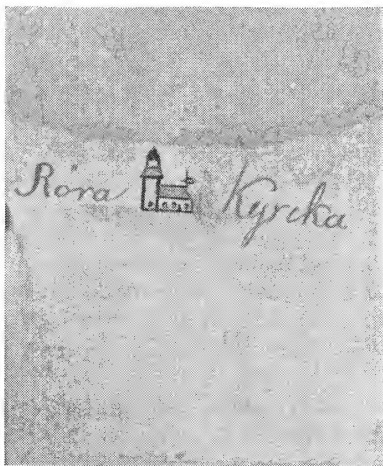 Röra Kyrcka